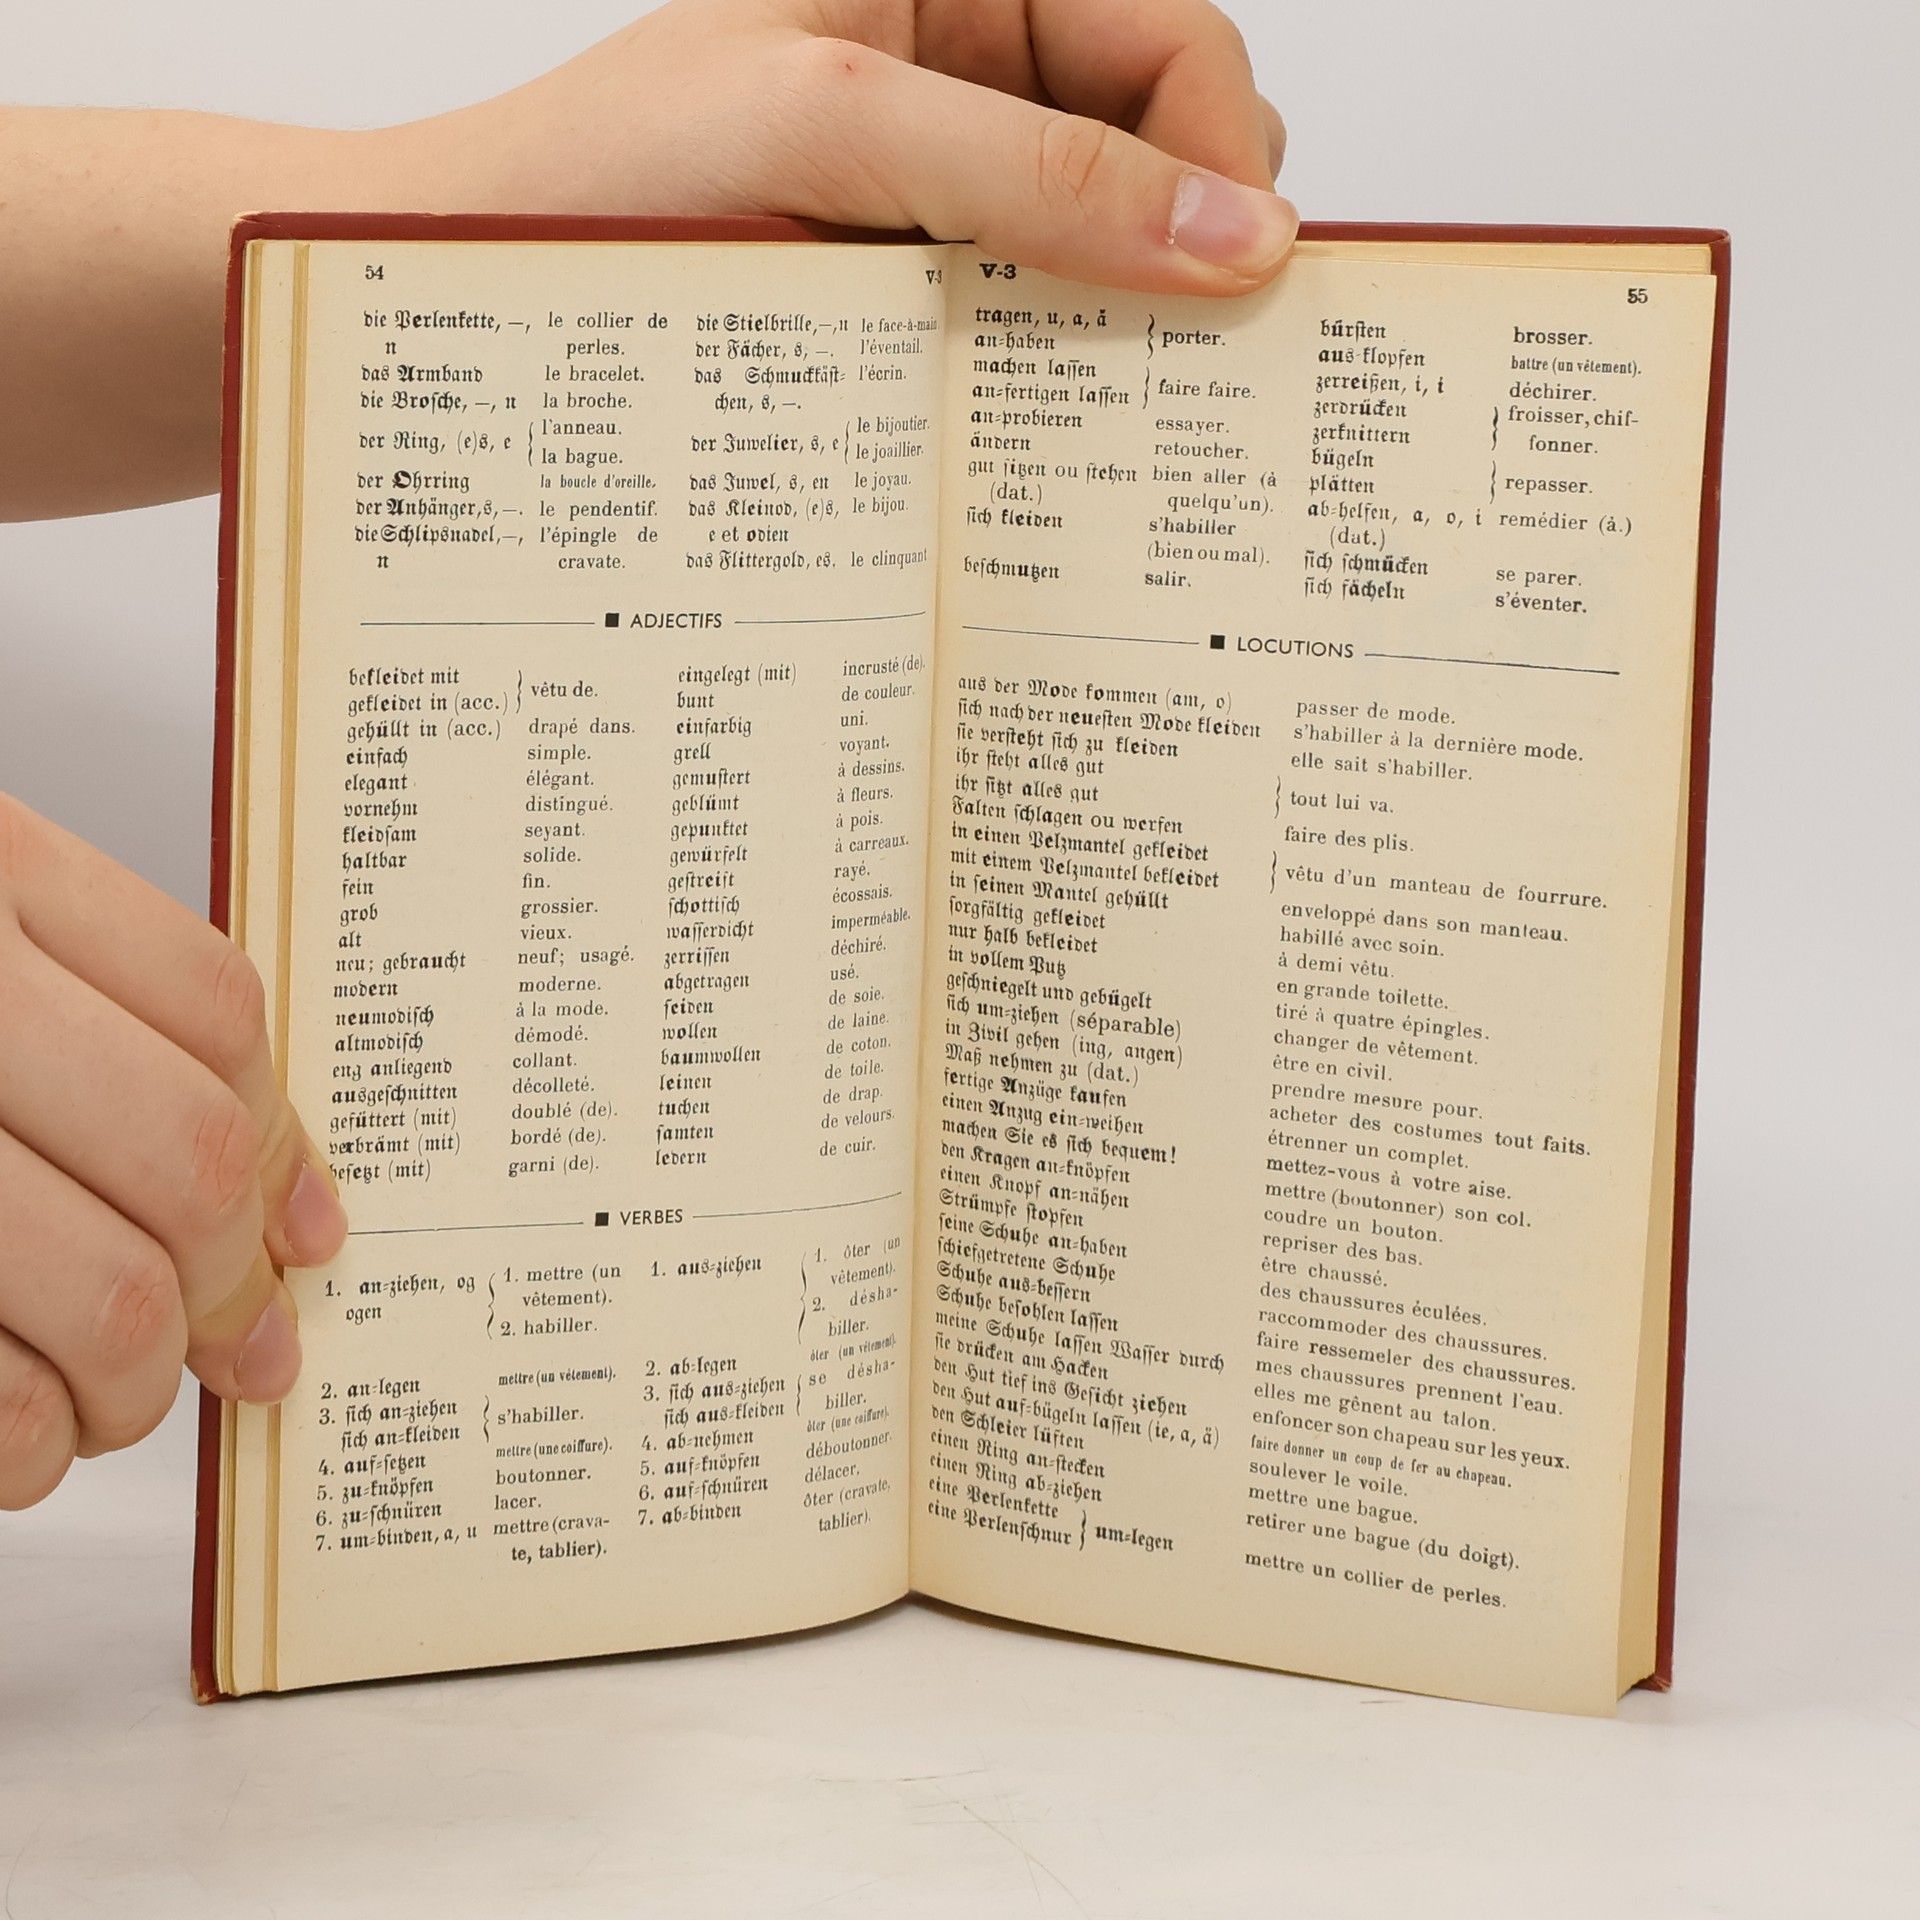 54
V-3
die Perlenkette, —, n
le collier de perles.
das Armband
le bracelet.
die Brosche, —, n
la broche.
der Ring, (e)s, e
l'anneau.
la bague.
der Ohrring
la boucle d'oreille.
der Anhänger, s, —.
le pendentif.
die Schlipsnadel, —, n
l'épingle de cravate.
die Stielbrille, —, n
le face-à-main
der Fächer, s, —.
l'éventail.
das Schmuckkäst-
chen, s, —.
l'écrin.
der Juwelier, s, e
le bijoutier.
le joaillier.
das Juwel, s, en
le joyau.
das Kleinod, (e)s,
e et odien
le bijou.
das Flittergold, es.
le clinquant
■ ADJECTIFS
bekleidet mit
gekleidet in (acc.)
vêtu de.
gehüllt in (acc.)
drapé dans.
einfach
simple.
elegant
élégant.
vornehm
distingué.
kleidsam
seyant.
haltbar
solide.
fein
fin.
grob
grossier.
alt
vieux.
neu; gebraucht
neuf; usagé.
modern
moderne.
neumodisch
à la mode.
altmodisch
démodé.
eng anliegend
collant.
ausgeschnitten
décolleté.
gefüttert (mit)
doublé (de).
verbrämt (mit)
bordé (de).
besetzt (mit)
garni (de).
eingelegt (mit)
incrusté (de).
bunt
de couleur.
einfarbig
uni.
grell
voyant.
gemustert
à dessins.
geblümt
à fleurs.
gepunktet
à pois.
gewürfelt
à carreaux.
gestreift
rayé.
schottisch
écossais.
wasserdicht
imperméable.
zerrissen
déchiré.
abgetragen
usé.
seiden
de soie.
wollen
de laine.
baumwollen
de coton.
leinen
de toile.
tuchen
de drap.
samten
de velours.
ledern
de cuir.
■ VERBES
1. an=ziehen, og
ogen
1. mettre (un
vêtement).
2. habiller.
2. an=legen
mettre (un vêtement).
3. sich an=ziehen
sich an=kleiden
s'habiller.
4. auf=setzen
mettre (une coiffure).
5. zu=knöpfen
boutonner.
6. zu=schnüren
lacer.
7. um=binden, a, u
mettre (crava-
te, tablier).
1. aus=ziehen
1. ôter (un
vêtement).
2. désha-
biller.
2. ab=legen
ôter (un vêtement).
3. sich aus=ziehen
sich aus=kleiden
se désha-
biller.
4. ab=nehmen
ôter (une coiffure).
5. auf=knöpfen
déboutonner.
6. auf=schnüren
délacer.
7. ab=binden
ôter (cravate,
tablier).
V-3
55
tragen, u, a, ä
an=haben
porter.
machen lassen
an=fertigen lassen
faire faire.
an=probieren
essayer.
ändern
retoucher.
gut sitzen ou stehen
(dat.)
bien aller (à
quelqu'un).
sich kleiden
s'habiller
(bien ou mal).
beschmutzen
salir.
bürsten
brosser.
aus=klopfen
battre (un vêtement).
zerreißen, i, i
déchirer.
zerdrücken
zerknittern
froisser, chif-
fonner.
bügeln
plätten
repasser.
ab=helfen, a, o, i
(dat.)
remédier (à.)
sich schmücken
se parer.
sich fächeln
s'éventer.
■ LOCUTIONS
aus der Mode kommen (am, o)
passer de mode.
sich nach der neuesten Mode kleiden
s'habiller à la dernière mode.
sie versteht sich zu kleiden
elle sait s'habiller.
ihr steht alles gut
ihr sitzt alles gut
tout lui va.
Falten schlagen ou werfen
faire des plis.
in einen Pelzmantel gekleidet
mit einem Pelzmantel bekleidet
vêtu d'un manteau de fourrure.
in seinen Mantel gehüllt
enveloppé dans son manteau.
sorgfältig gekleidet
habillé avec soin.
nur halb bekleidet
à demi vêtu.
in vollem Putz
en grande toilette.
geschniegelt und gebügelt
tiré à quatre épingles.
sich um=ziehen (séparable)
changer de vêtement.
in Zivil gehen (ing, angen)
être en civil.
Maß nehmen zu (dat.)
prendre mesure pour.
fertige Anzüge kaufen
acheter des costumes tout faits.
einen Anzug ein=weihen
étrenner un complet.
machen Sie es sich bequem!
mettez-vous à votre aise.
den Kragen an=knöpfen
mettre (boutonner) son col.
einen Knopf an=nähen
coudre un bouton.
Strümpfe stopfen
repriser des bas.
seine Schuhe an=haben
être chaussé.
schiefgetretene Schuhe
des chaussures éculées.
Schuhe aus=bessern
raccommoder des chaussures.
Schuhe besohlen lassen
faire ressemeler des chaussures.
meine Schuhe lassen Wasser durch
mes chaussures prennent l'eau.
sie drücken am Hacken
elles me gênent au talon.
den Hut tief ins Gesicht ziehen
enfoncer son chapeau sur les yeux.
den Hut auf=bügeln lassen (ie, a, ä)
faire donner un coup de fer au chapeau.
den Schleier lüften
soulever le voile.
einen Ring an=stecken
mettre une bague.
einen Ring ab=ziehen
retirer une bague (du doigt).
eine Perlenkette
eine Perlenschnur
um=legen
mettre un collier de perles.